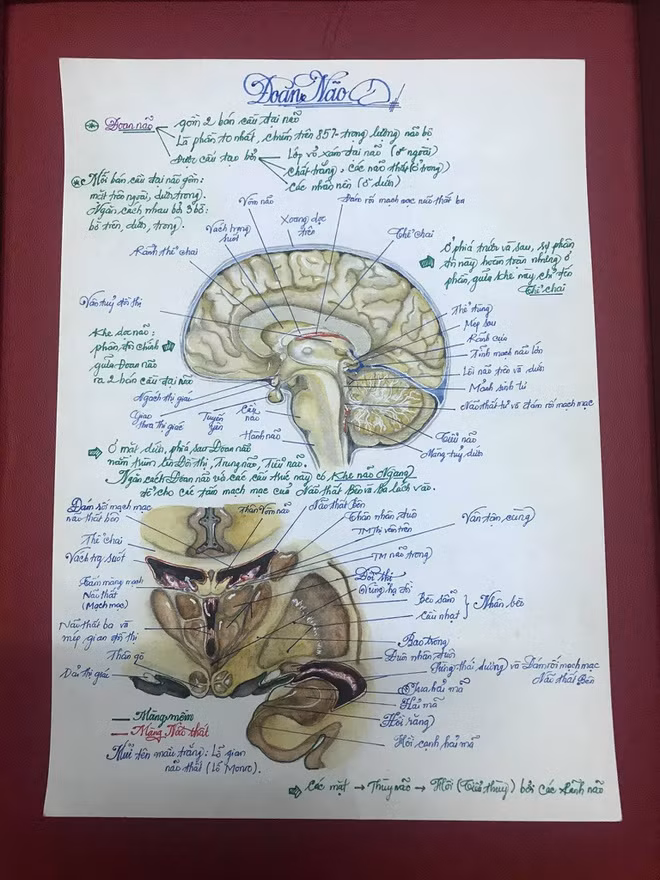 Đoan Não
Đoan não
gồm 2 bán cầu đại não
Là phần to nhất, chiếm trên 85% trọng lượng não bộ
Được cấu tạo bở
Lớp vỏ xám đại não (ở ngoài)
chất trắng, các não thất (ở trong)
các nhân nền (ở dưới)
Mỗi bán cầu đại não gồm:
mặt trên ngoài, dưới, trong).
Ngăn cách nhau bở 3 bờ:
bờ trên, dưới, trong).
Vòm não
Đám rối mạch mạc não thất ba
Xoang dọc
trên
Vách trong
suốt
Thể chai
Rãnh thể chai
Ở phía trước và sau, sự phân
tới thể chai
Thể chai
Thể tùng
Mép sau
Rãnh cựa
Tĩnh mạch não lớn
Lồi não trên và dưới
Mảnh sinh tư
Não thất tư và đám rối mạch mạc
Khe dọc não:
phân đôi chính
giữa Đoan não
ra 2 bán cầu đại não
Ngách thị giác
Giao
thoa thị giác
Tuyến
yên
Cầu
não
Hành não
Tiểu não
Màng tuỷ dưới
Ở mặt dưới, phía sau Đoan não
nằm trùm lên Đồi thị, Trung não, Tiểu não.
Ngăn cách Đoan não và các cấu trúc này có Khe não Ngang
để cho các tấm mạch mạc của Não thất Bên và Ba lách vào.
Đám rối mạch mạc
não thất bên
Thân Vòm não
Não thất Bên
Thân nhân đuôi
TM Thị vân trên
Vân tận cùng
Thể chai
Vách trong suốt
TM não trong
Tấm màng mạch
Não thất
(Mạch mạc)
Đồi thị
Vùng hạ đồi
Bèo sẫm
Cầu nhạt
Nhân bèo
Não thất ba và
mép gian đồi thị
Bao trong
Đuôi nhân đuôi
Thân gò
Dải thị giác
Sừng thái dương và Đám rối mạch mạc
Não thất Bên
Tua hải mã
Hải mã
Hồi răng
Hồi cạnh hải mã
Màng mềm
Màng Não thất
Mũi tên màu trắng: Lỗ gian
não thất (Lỗ Monro).
Các mặt → Thùy não → Hồi (Tiểu thùy) bởi các Rãnh não